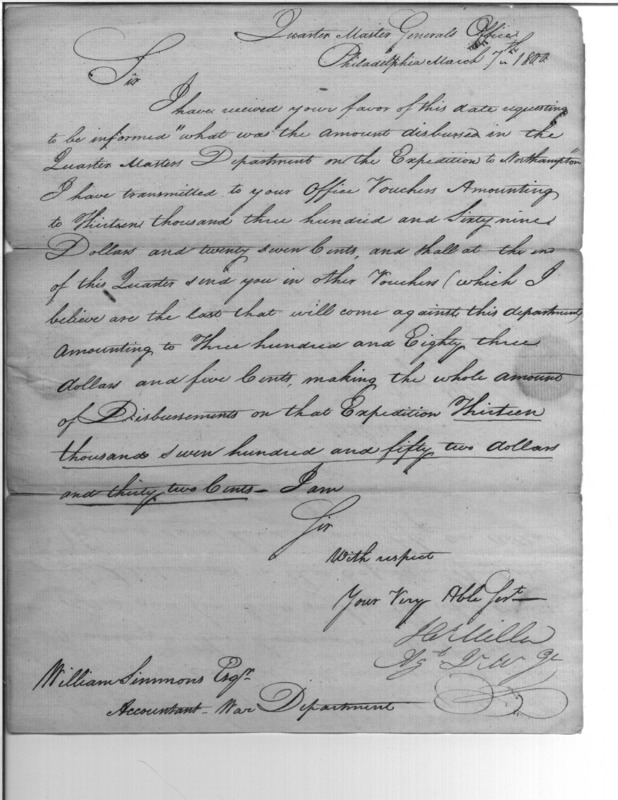 Quarter Master Generals Office
Philadelphia March 7th 1800
Sir
I have received your favor of this date requesting
to be informed "what was the amount disbursed in the
Quarter Masters Department on the Expedition to Northampton"
I have transmitted to your Office Vouchers Amounting
to Thirteen thousand three hundred and Sixty nine
Dollars and twenty seven Cents, and shall at the end
of this Quarter send you in other Vouchers (which I
believe are the last that will come against this department)
amounting to Three hundred and Eighty three
dollars and five Cents, making the whole amount
of Disbursements on that Expedition Thirteen
thousand seven hundred and fifty two dollars
and thirty two Cents – I am
Sir
With respect
Your Very Able Servt
Miller
William Simmons Esqr.
Accountant – War Department